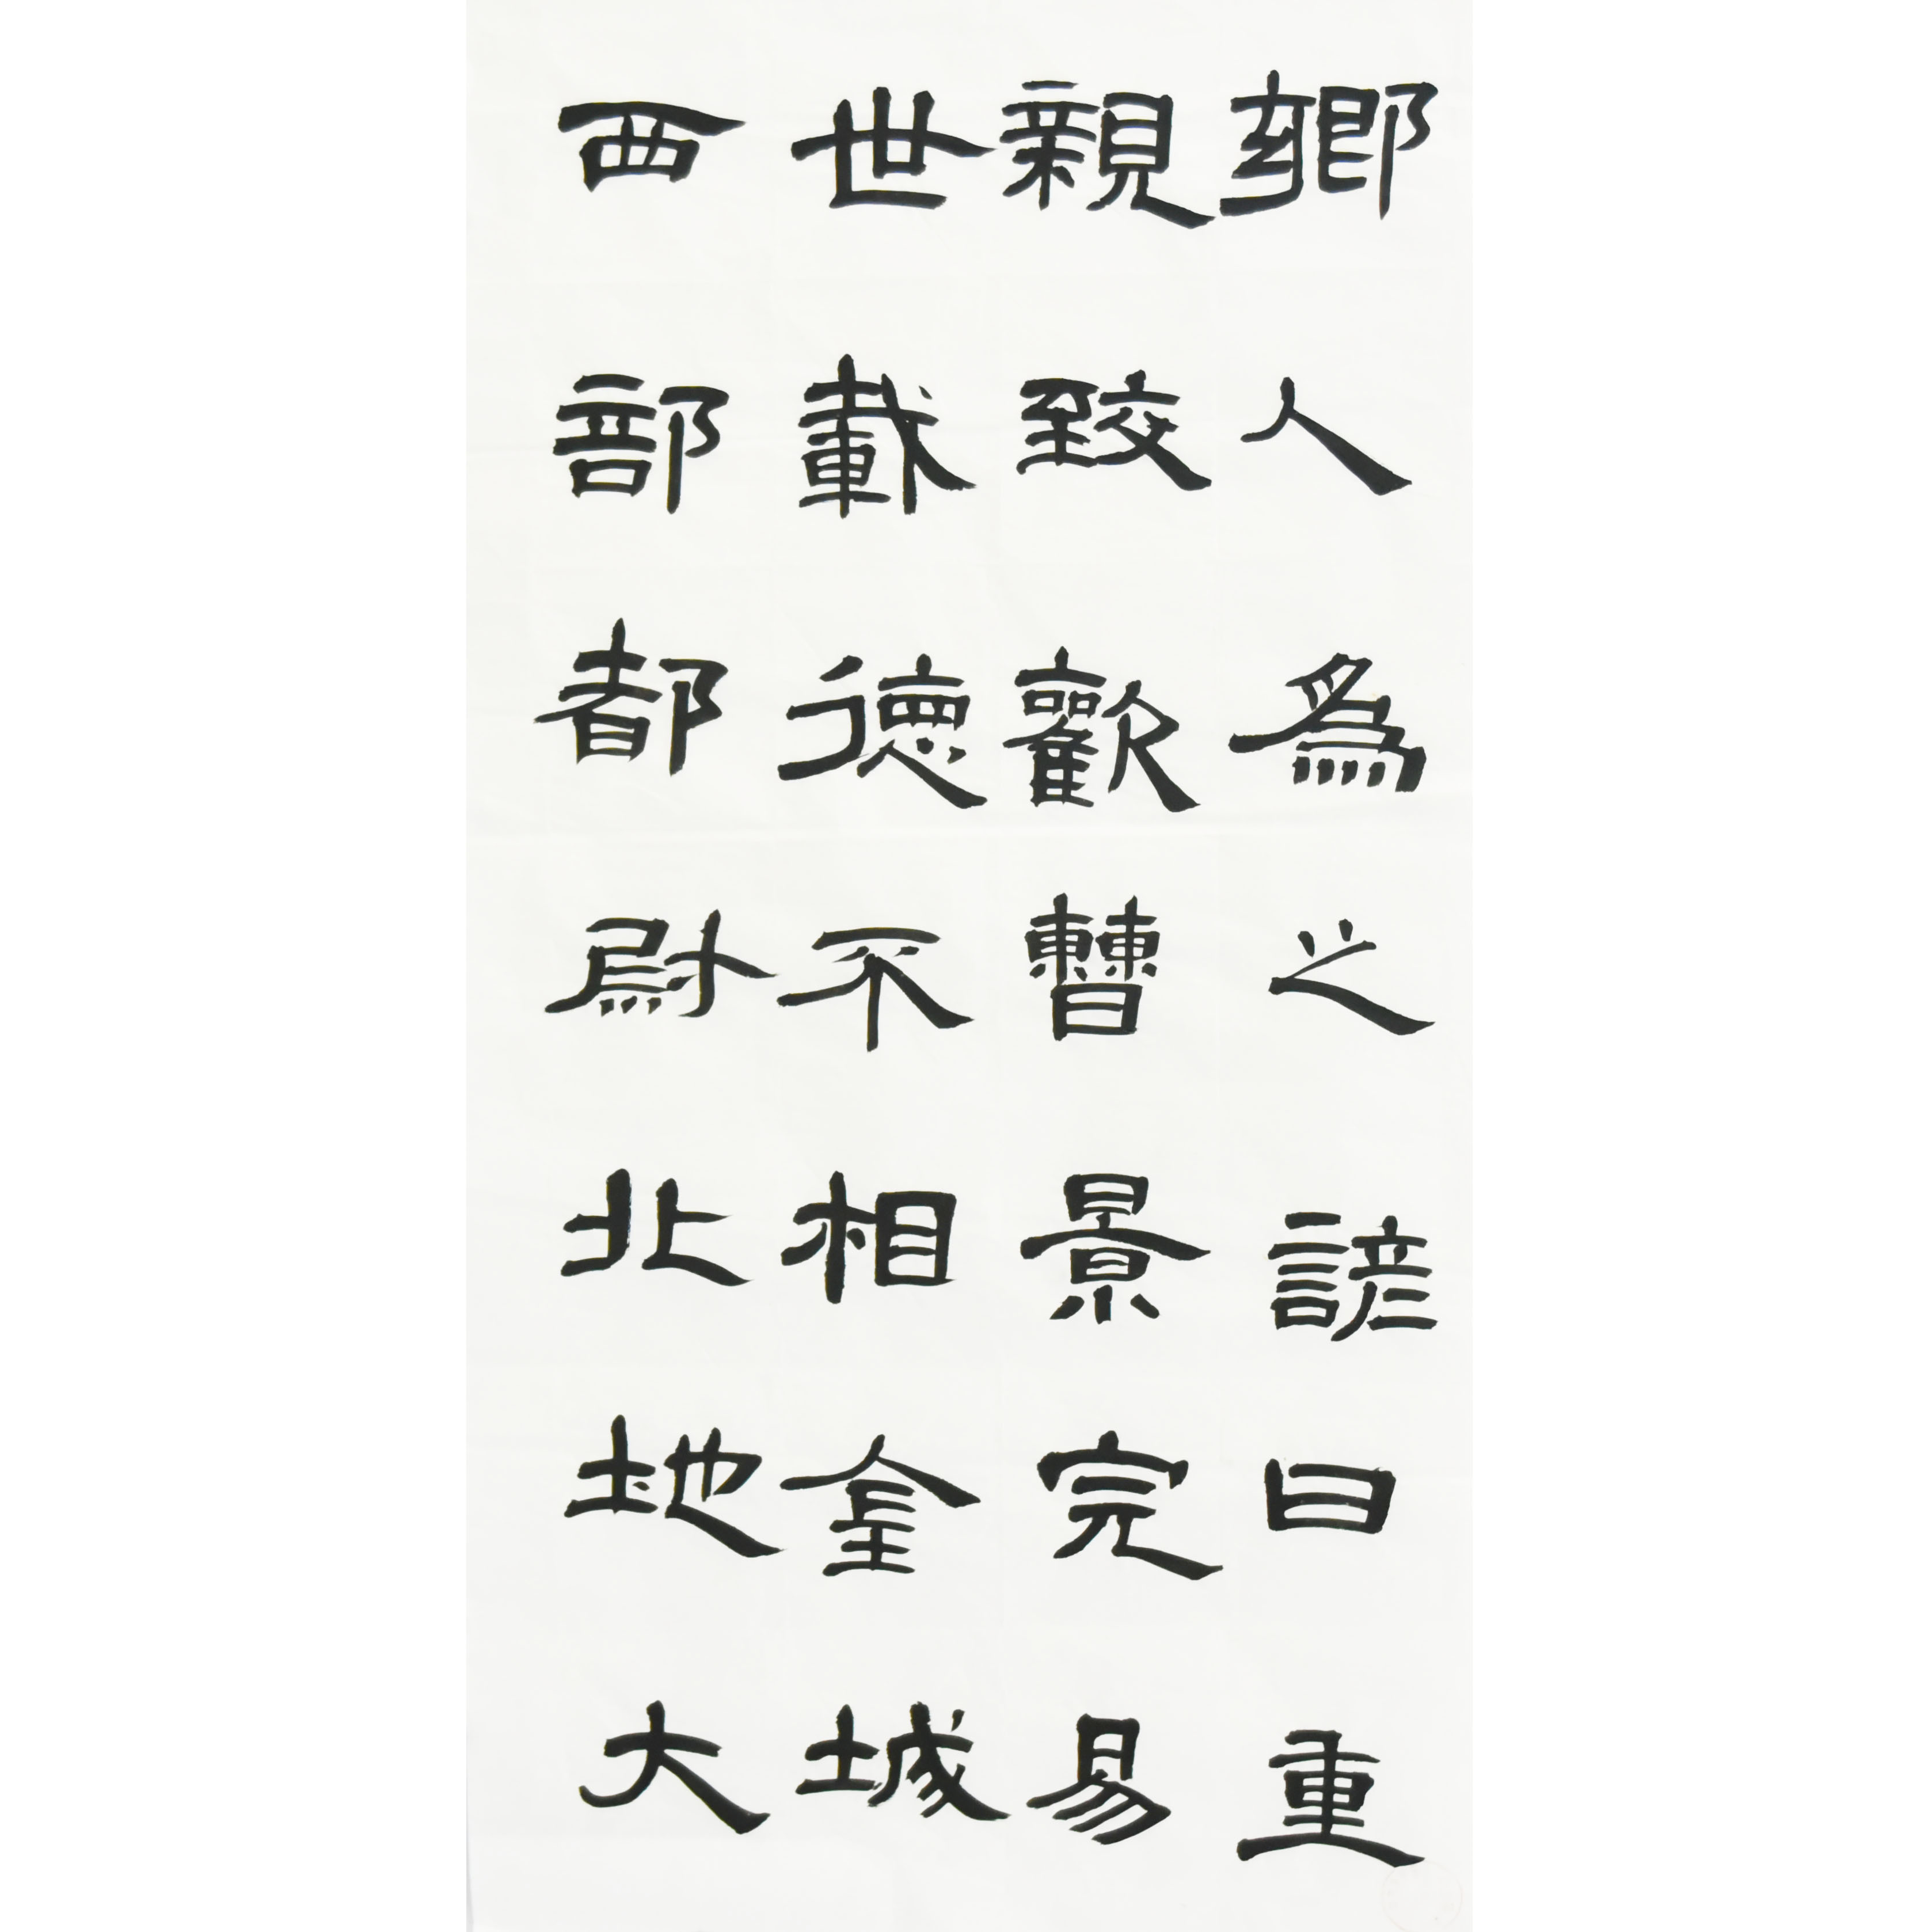 鄉人為之諺曰重
親致歡曹景完易
世載德不相金城
西部都尉北地大